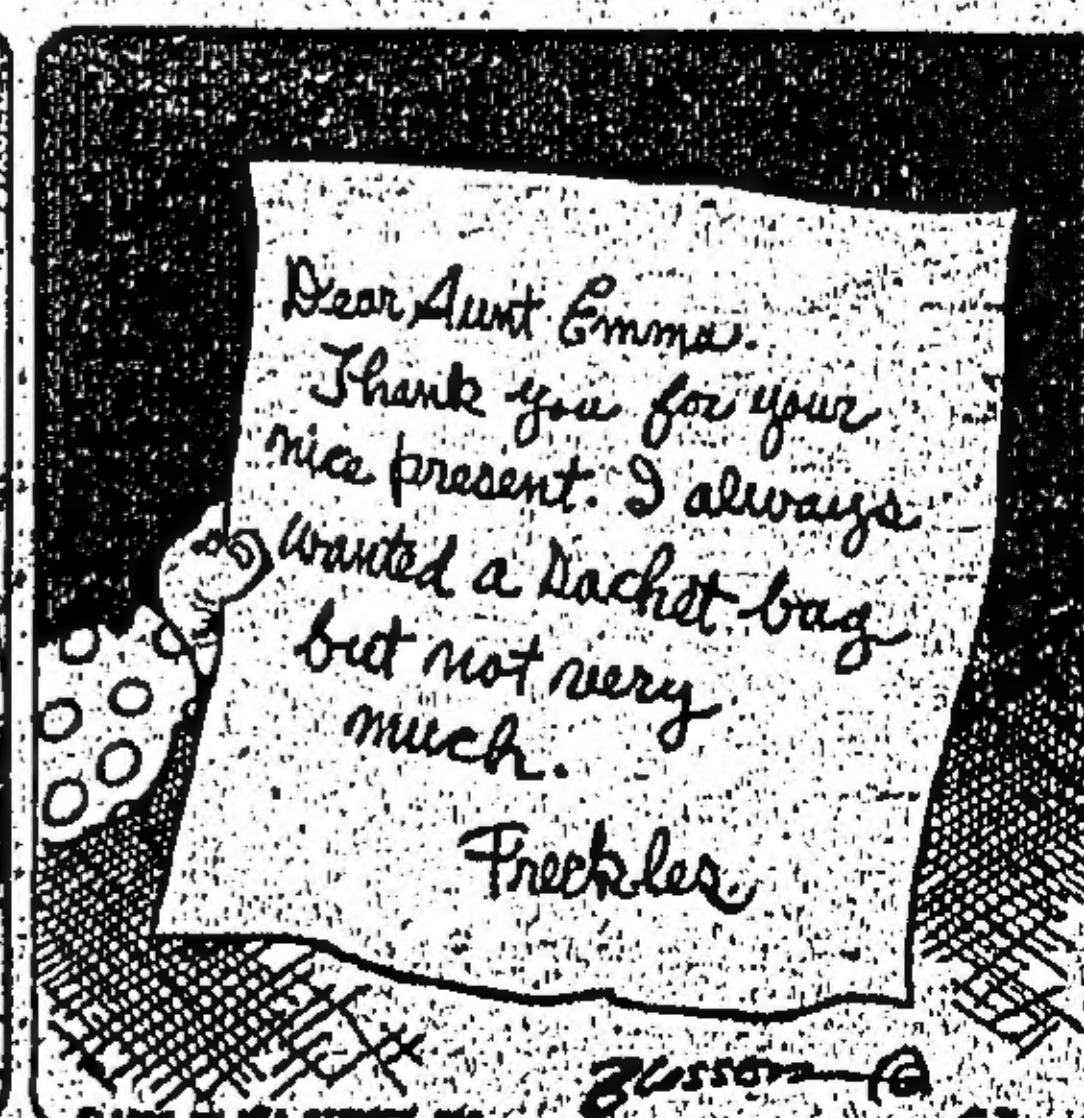 Dear Aunt Emma.
Thank you for your
nice present. I always
wanted a sachet bag
but not very
much.
Freckles.
Blosser